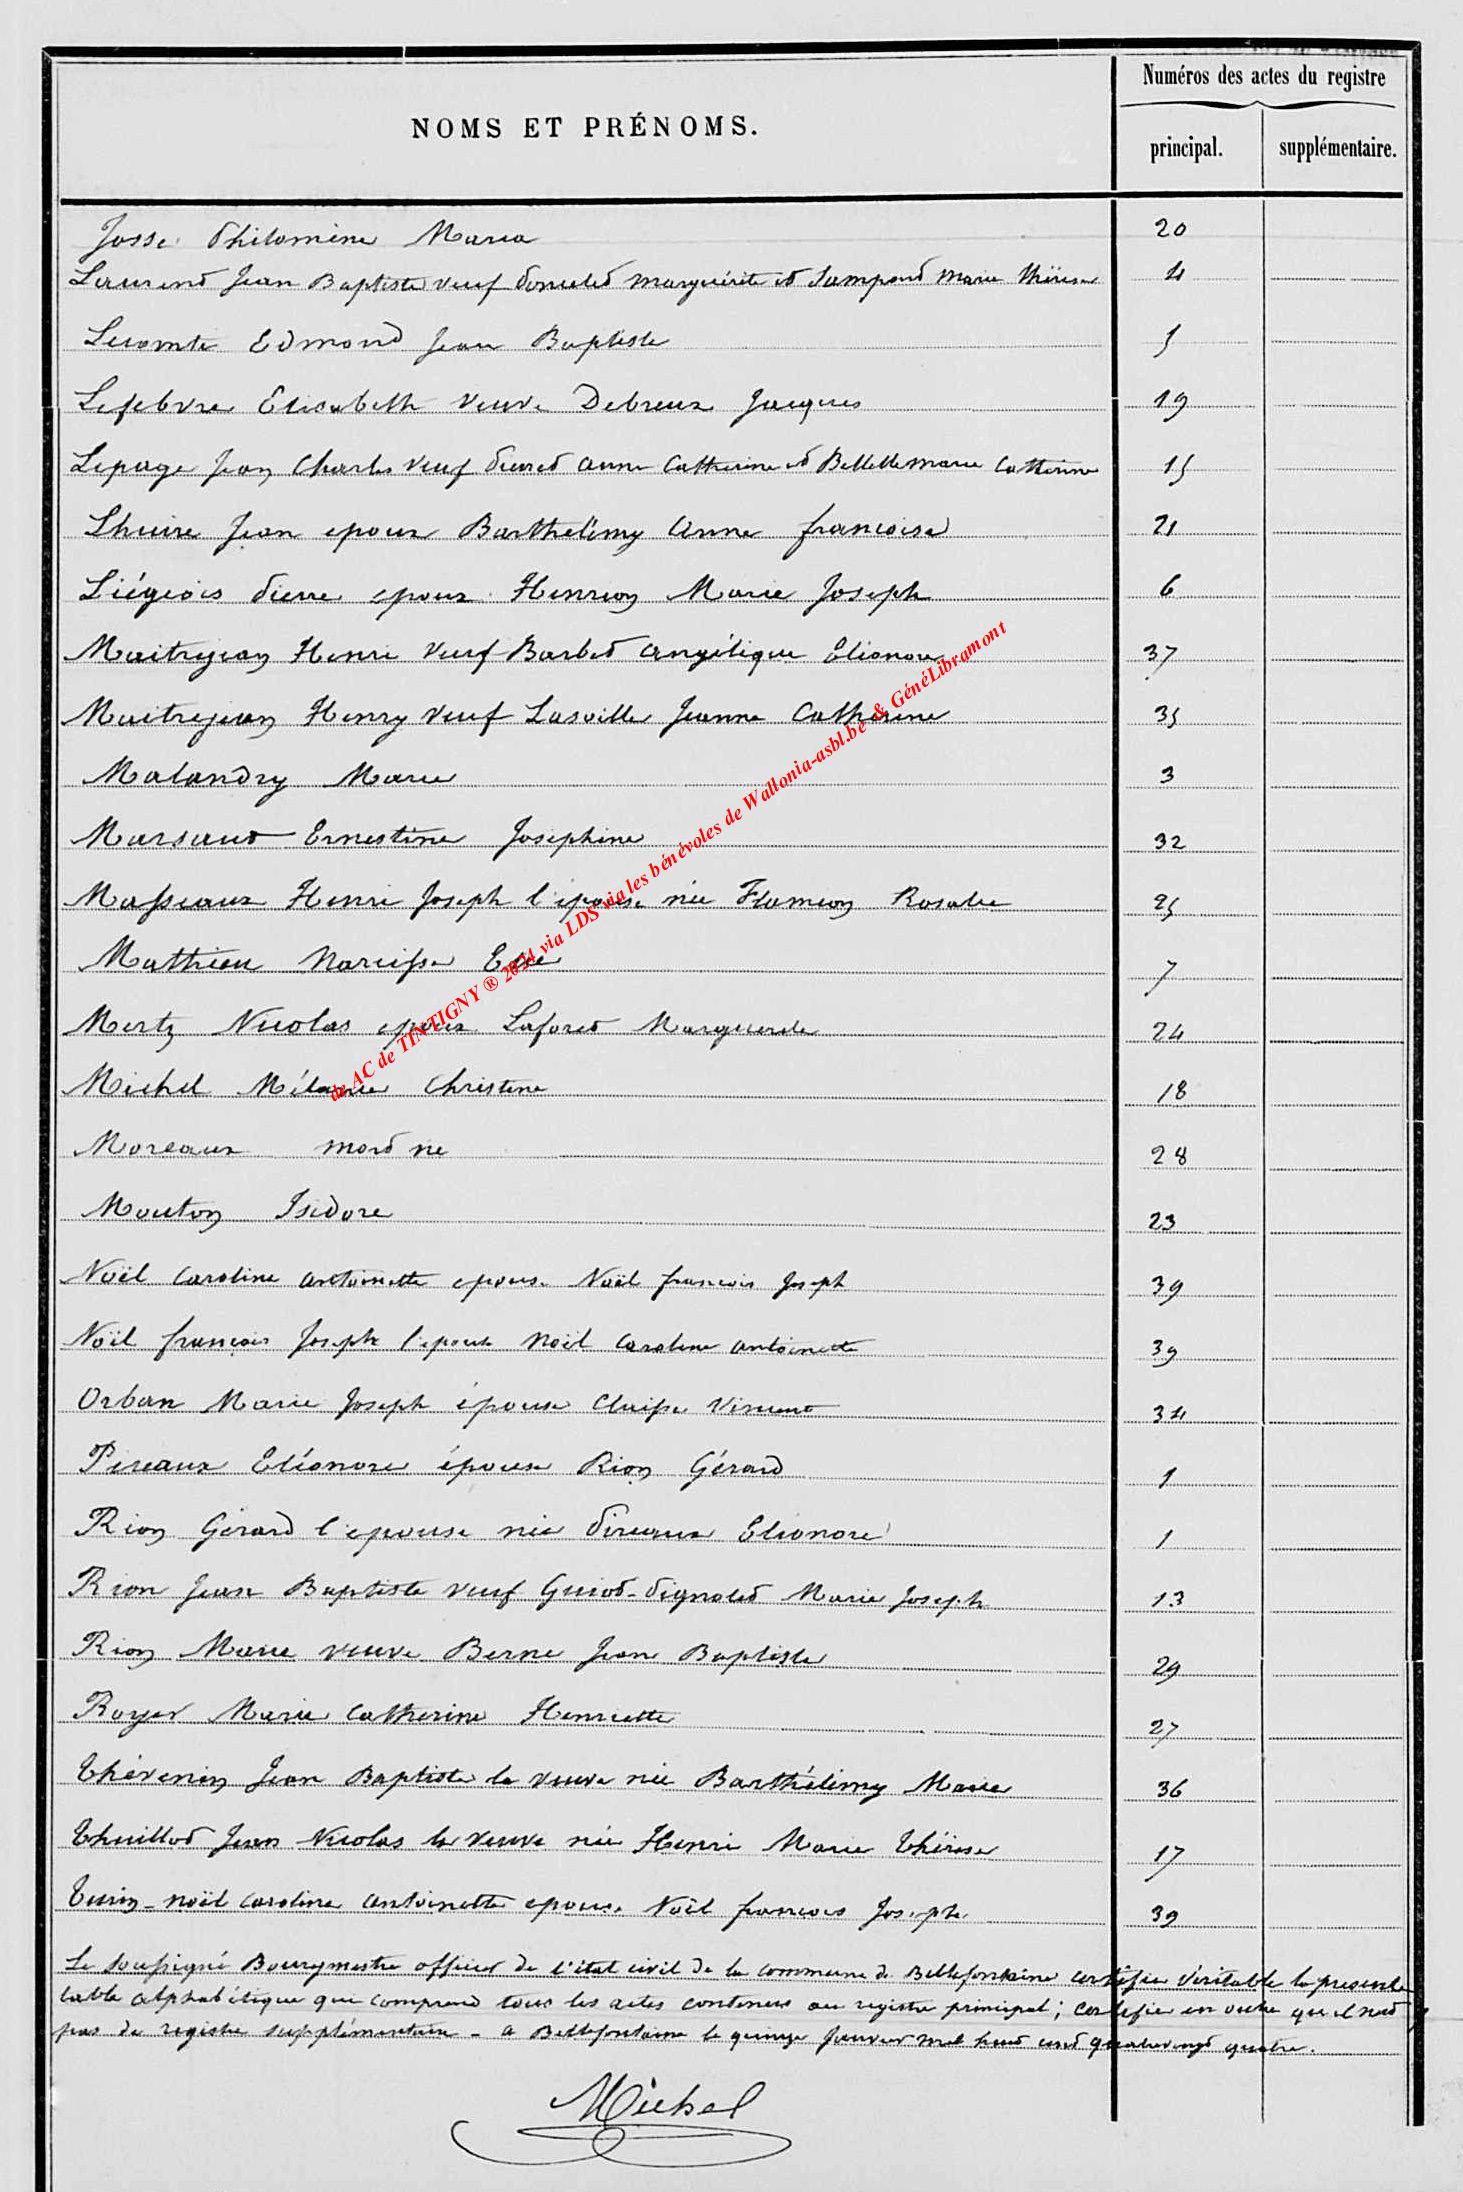 Numéros des actes du registre
NOMS ET PRÉNOMS.
principal. supplémentaire.
Josse Philomène Maria 20
Laurend Jean Baptiste veuf Ponceled marguérite et Sampond Marie thérèse 4
Lecomte Edmond Jean Baptiste 5
Lefebvre Elisabeth veuve Debreux Jacques 19
Lepage Jean Charles veuf Pierred anne Catherine et Bellelle marie Catherine 15
Lhuire Jean epoux Barthelémy Anne francoise 21
Liégeois Pierre epoux Henrion Marie Joseph 6
Maitrejean Henri veuf Barbed Angélique Elionore 37
Maitrejean Henry veuf Lasville Jeanne Catherine 35
Malandry Marie 3
Marsaud Ernestine Josephine 32
Massiaux Henri Joseph l'épouse née Flamion Rosalie 25
Mathieu Narcisse 7
Mertz Nicolas epoux Lafored Marguerite 24
Michel Mélanie Christine 18
Moreaux mord né 28
Mouton Isidore 23
Noël Caroline antoinette epouse Noël francois Joseph 39
Noël françois Joseph l'epouse Noël Caroline antoinette 39
Orban Marie Joseph épouse Claisse Vincent 34
Pireaux Eléonore épouse Rion Gérard 1
Rion Gérard l'epouse née Pireaux Elionore 1
Rion Jean Baptiste veuf Guiod-Pignoled Marie Joseph 13
Rion Marie veuve Berne Jean Baptiste 29
Royer Marie Catherine Henriette 27
Thévenin Jean Baptiste la veuve née Barthélimy Marie 36
Thuillod Jean Nicolas la veuve née Henri Marie Thérèse 17
Turin-noël Caroline Antoinette epouse Noël francois Joseph 39
Le soussigné Bourgmestre officier de l'état civil de la commune de Bellefontaine certifie véritable la presente
table alphabétique qui comprend tous les actes contenus au registre principal; certifie en outre qu'il n'est
pas de registre supplémentaire - a Bellefontaine le quinze Janvier mil huit cent quatre vingt quatre.
Michel
de AC de TINTIGNY ® 2024 via LDS via les bénévoles de Wallonia-asbl.be & GénéLibramont